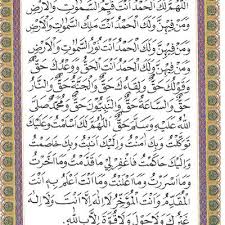 اَللّٰهُمَّ لَكَ الْحَمْدُ اَنْتَ قَيِّمُ السَّمٰوَاتِ وَالْاَرْضِ
وَمَنْ فِيْهِنَّ وَلَكَ الْحَمْدُ اَنْتَ مَلِكُ السَّمٰوَاتِ وَالْاَرْضِ
وَمَنْ فِيْهِنَّ وَلَكَ الْحَمْدُ اَنْتَ نُوْرُ السَّمٰوَاتِ وَالْاَرْضِ
وَمَنْ فِيْهِنَّ وَلَكَ الْحَمْدُ اَنْتَ الْحَقُّ وَوَعْدُكَ حَقٌّ
وَقَوْلُكَ حَقٌّ وَلِقَاءُكَ حَقٌّ وَالْجَنَّةُ حَقٌّ وَالنَّارُ
حَقٌّ وَالسَّاعَةُ حَقٌّ وَالنَّبِيُّوْنَ حَقٌّ وَمُحَمَّدٌ صَلَّى
اللهُ عَلَيْهِ وَسَلَّمَ حَقٌّ اَللّٰهُمَّ لَكَ اَسْلَمْتُ وَعَلَيْكَ
تَوَكَّلْتُ وَبِكَ اٰمَنْتُ وَاِلَيْكَ اَنَبْتُ وَبِكَ خَاصَمْتُ
وَاِلَيْكَ حَاكَمْتُ فَاغْفِرْ لِيْ مَا قَدَّمْتُ وَمَا اَخَّرْتُ
وَمَا اَسْرَرْتُ وَمَا اَعْلَنْتُ وَمَا اَنْتَ اَعْلَمُ بِهٖ اَنْتَ
الْمُقَدِّمُ وَاَنْتَ الْمُؤَخِّرُ لَا اِلٰهَ اِلَّا اَنْتَ وَلَا اِلٰهَ
غَيْرُكَ وَلَا حَوْلَ وَلَا قُوَّةَ اِلَّا بِاللهِ